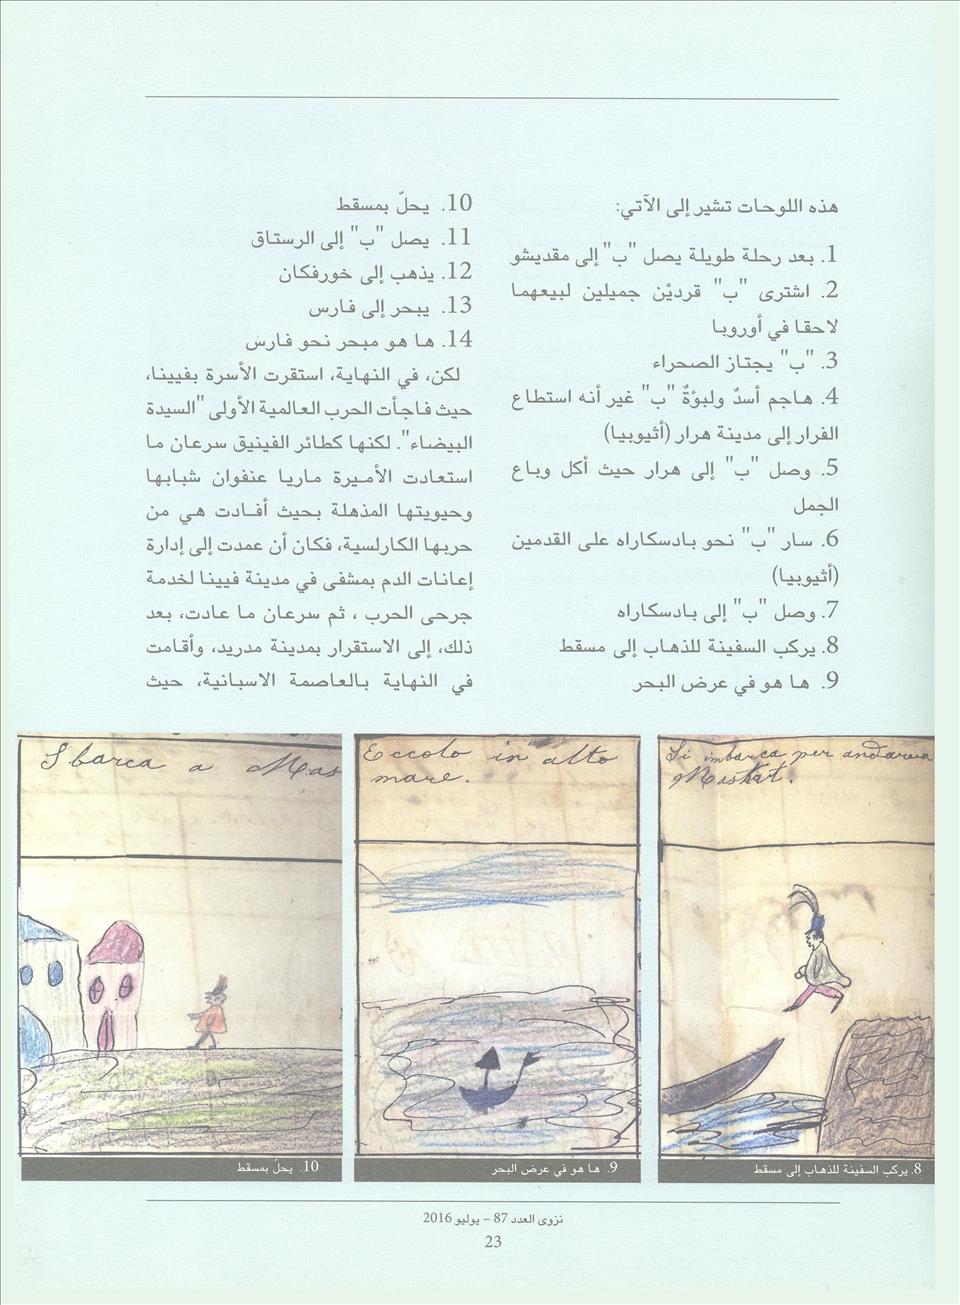 هذه اللوحات تشير إلى الآتي:
1. بعد رحلة طويلة يصل "ب" إلى مقديشو
2. اشترى "ب" قرديْن جميلين لبيعهما
لاحقا في أوروبا
3. "ب" يجتاز الصحراء
4. هاجم أسدٌ ولبؤةٌ "ب" غير أنه استطاع
الفرار إلى مدينة هرار (أثيوبيا)
5. وصل "ب" إلى هرار حيث أكل وباع
الجمل
6. سار "ب" نحو بادسكاراه على القدمين
(أثيوبيا)
7. وصل "ب" إلى بادسكاراه
8. يركب السفينة للذهاب إلى مسقط
9. ها هو في عرض البحر
10. يحلّ بمسقط
11. يصل "ب" إلى الرستاق
12. يذهب إلى خورفكان
13. يبحر إلى فارس
14. ها هو مبحر نحو فارس
لكن، في النهاية، استقرت الأسرة بفيينا،
حيث فاجأت الحرب العالمية الأولى "السيدة
البيضاء". لكنها كطائر الفينيق سرعان ما
استعادت الأميرة ماريا عنفوان شبابها
وحيويتها المذهلة بحيث أفادت هي من
حربها الكارلسية، فكان أن عمدت إلى إدارة
إعانات الدم بمشفى في مدينة فيينا لخدمة
جرحى الحرب ، ثم سرعان ما عادت، بعد
ذلك، إلى الاستقرار بمدينة مدريد، وأقامت
في النهاية بالعاصمة الاسبانية، حيث
Si imbarca per andare a
Maskat.
8. يركب السفينة للذهاب إلى مسقط
Eccolo in alto
mare.
9. ها هو في عرض البحر
Sbarca a Mas
10. يحلّ بمسقط
نزوى العدد 87 – يوليو 2016
23